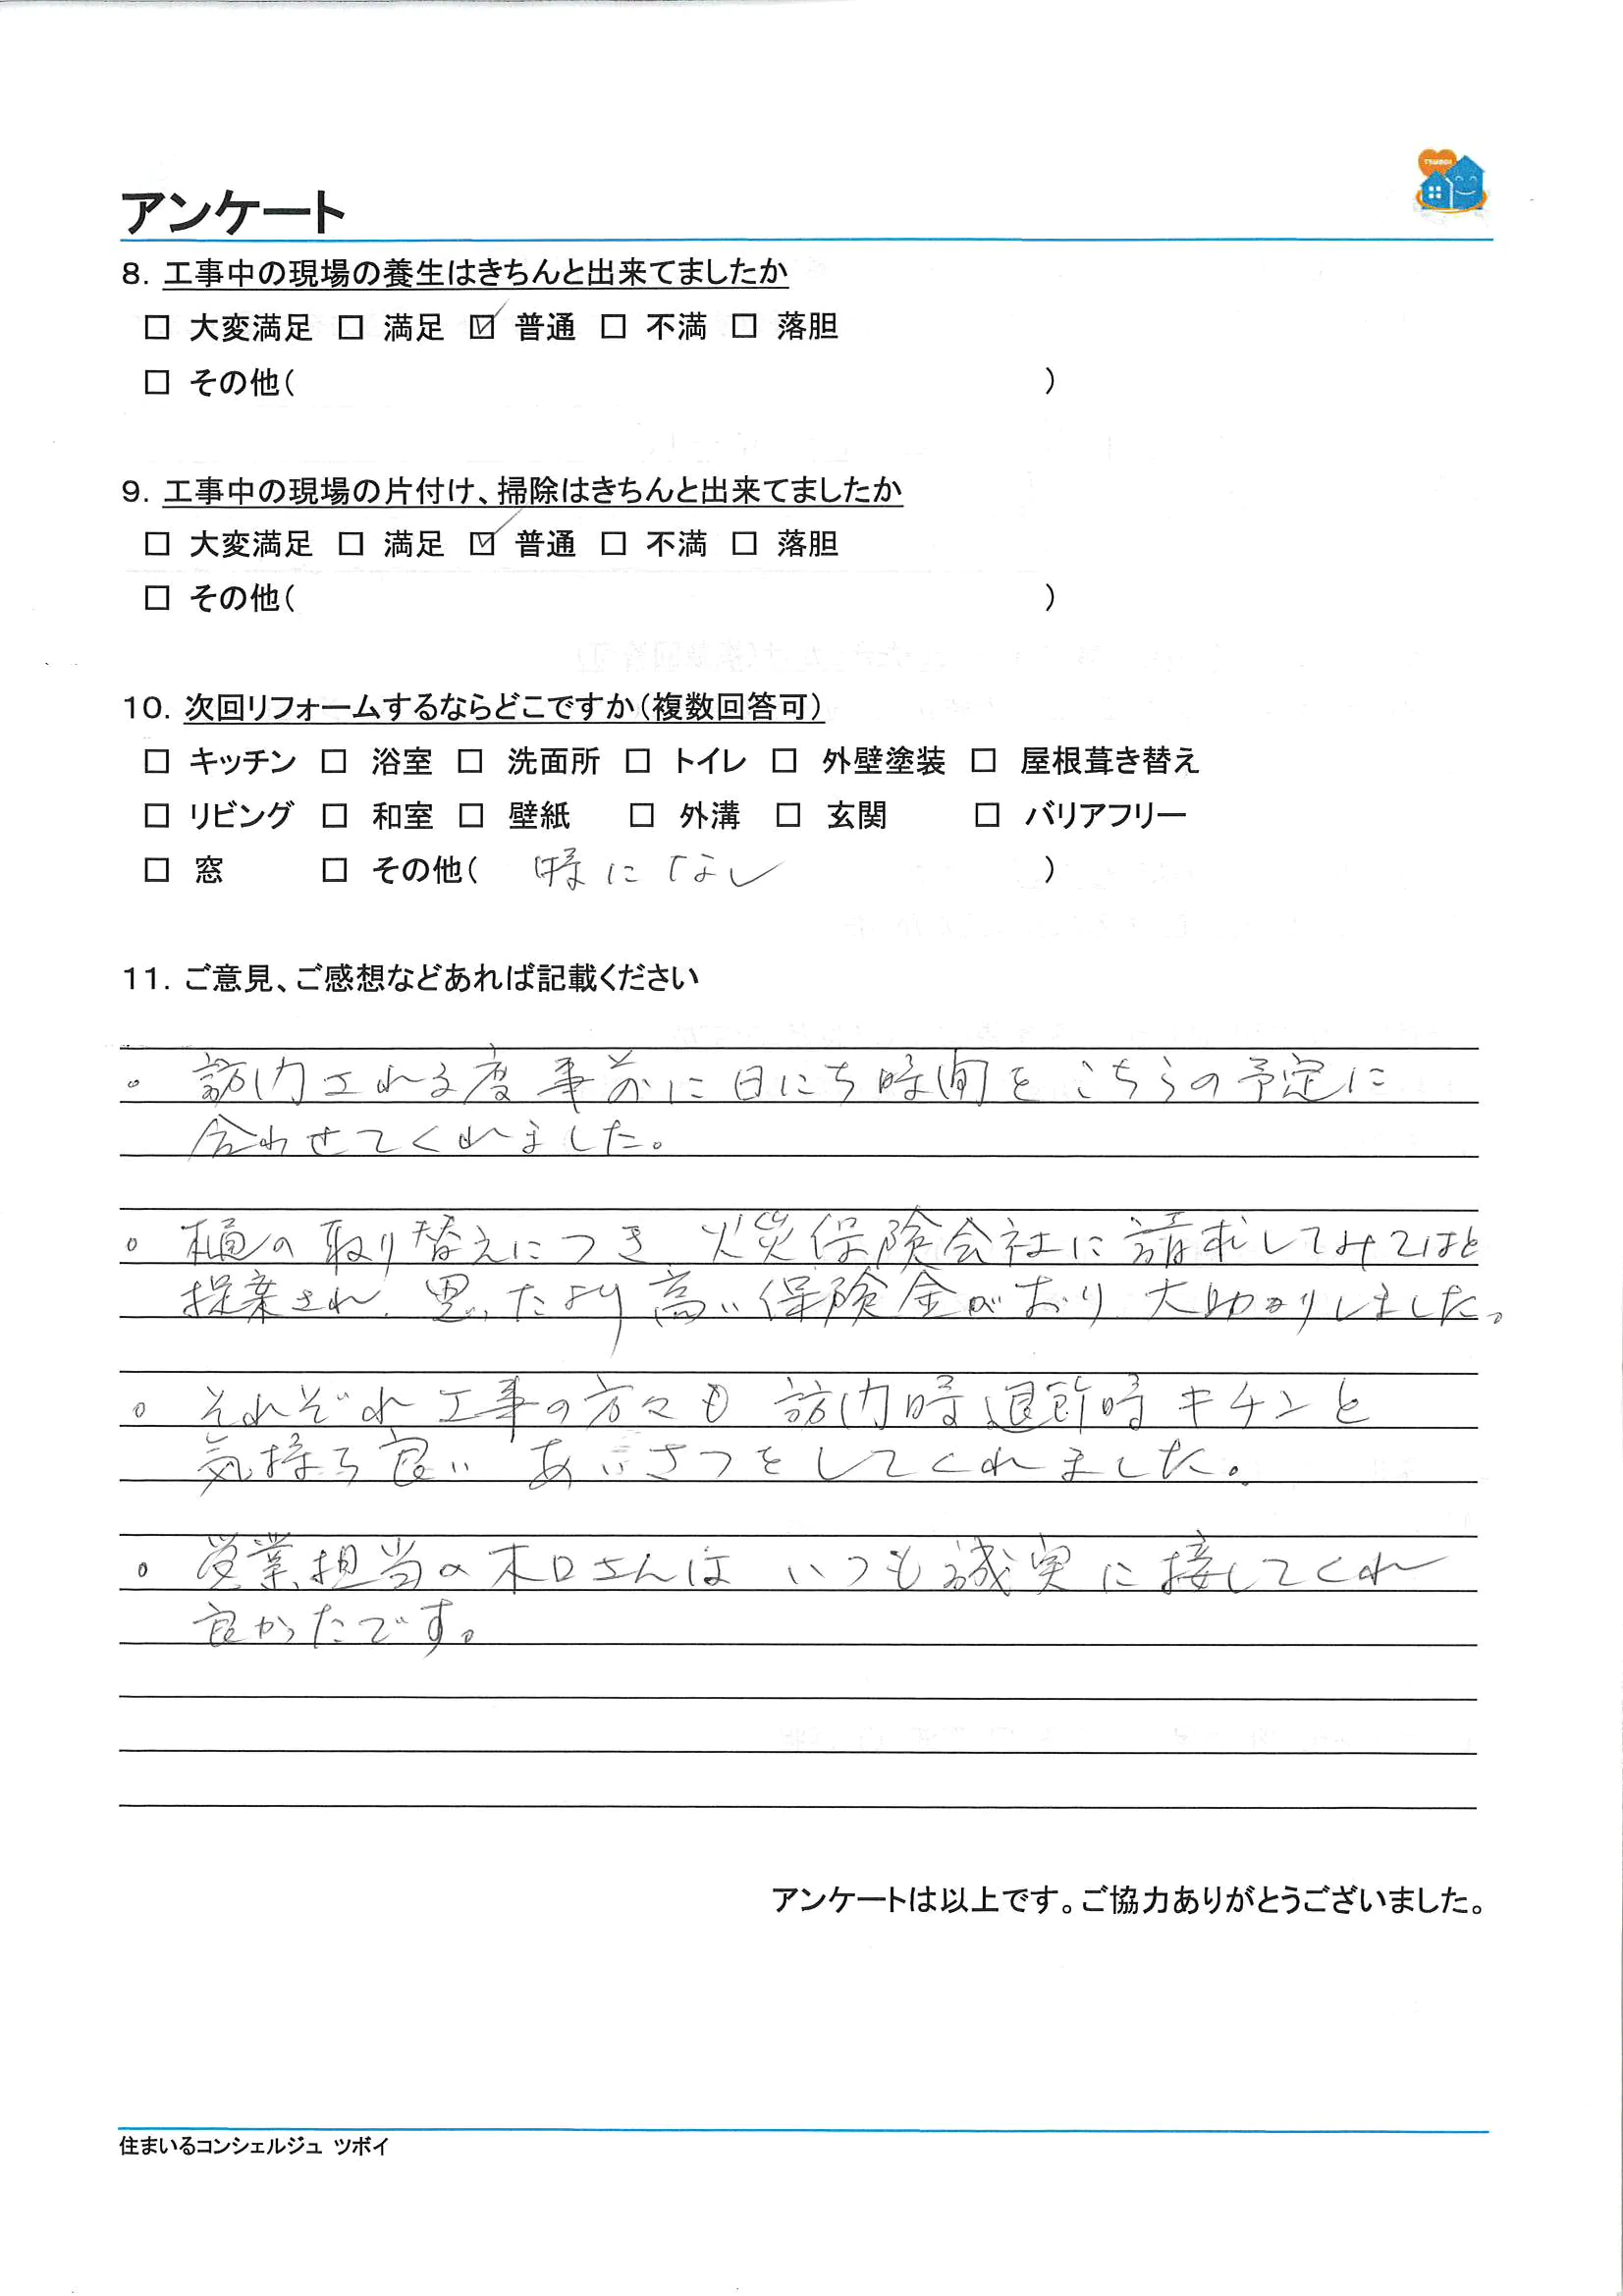 TSUBOI
アンケート
8. 工事中の現場の養生はきちんと出来てましたか
□ 大変満足 □ 満足 ☑ 普通 □ 不満 □ 落胆
□ その他( )
9. 工事中の現場の片付け、掃除はきちんと出来てましたか
□ 大変満足 □ 満足 ☑ 普通 □ 不満 □ 落胆
□ その他( )
10. 次回リフォームするならどこですか(複数回答可)
□ キッチン □ 浴室 □ 洗面所 □ トイレ □ 外壁塗装 □ 屋根葺き替え
□ リビング □ 和室 □ 壁紙 □ 外溝 □ 玄関 □ バリアフリー
□ 窓 □ その他( 特になし )
11. ご意見、ご感想などあれば記載ください
。訪問される度事前に日にち時間をこちらの予定に
合わせてくれました。
。樋の取り替えにつき 火災保険会社に請求してみてはと
提案され、思ったより高い保険金がおり 大助かりしました。
。それぞれ工事の方々も 訪問時退節時キチンと
気持ち良い あいさつをしてくれました。
。営業担当の木口さんは いつも誠実に接してくれ
良かったです。
アンケートは以上です。ご協力ありがとうございました。
住まいるコンシェルジュ ツボイ